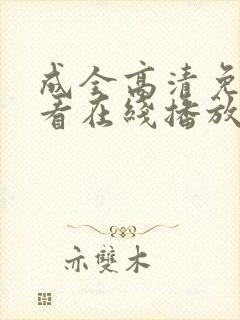 成全高清免
看在线播放
亦雙木